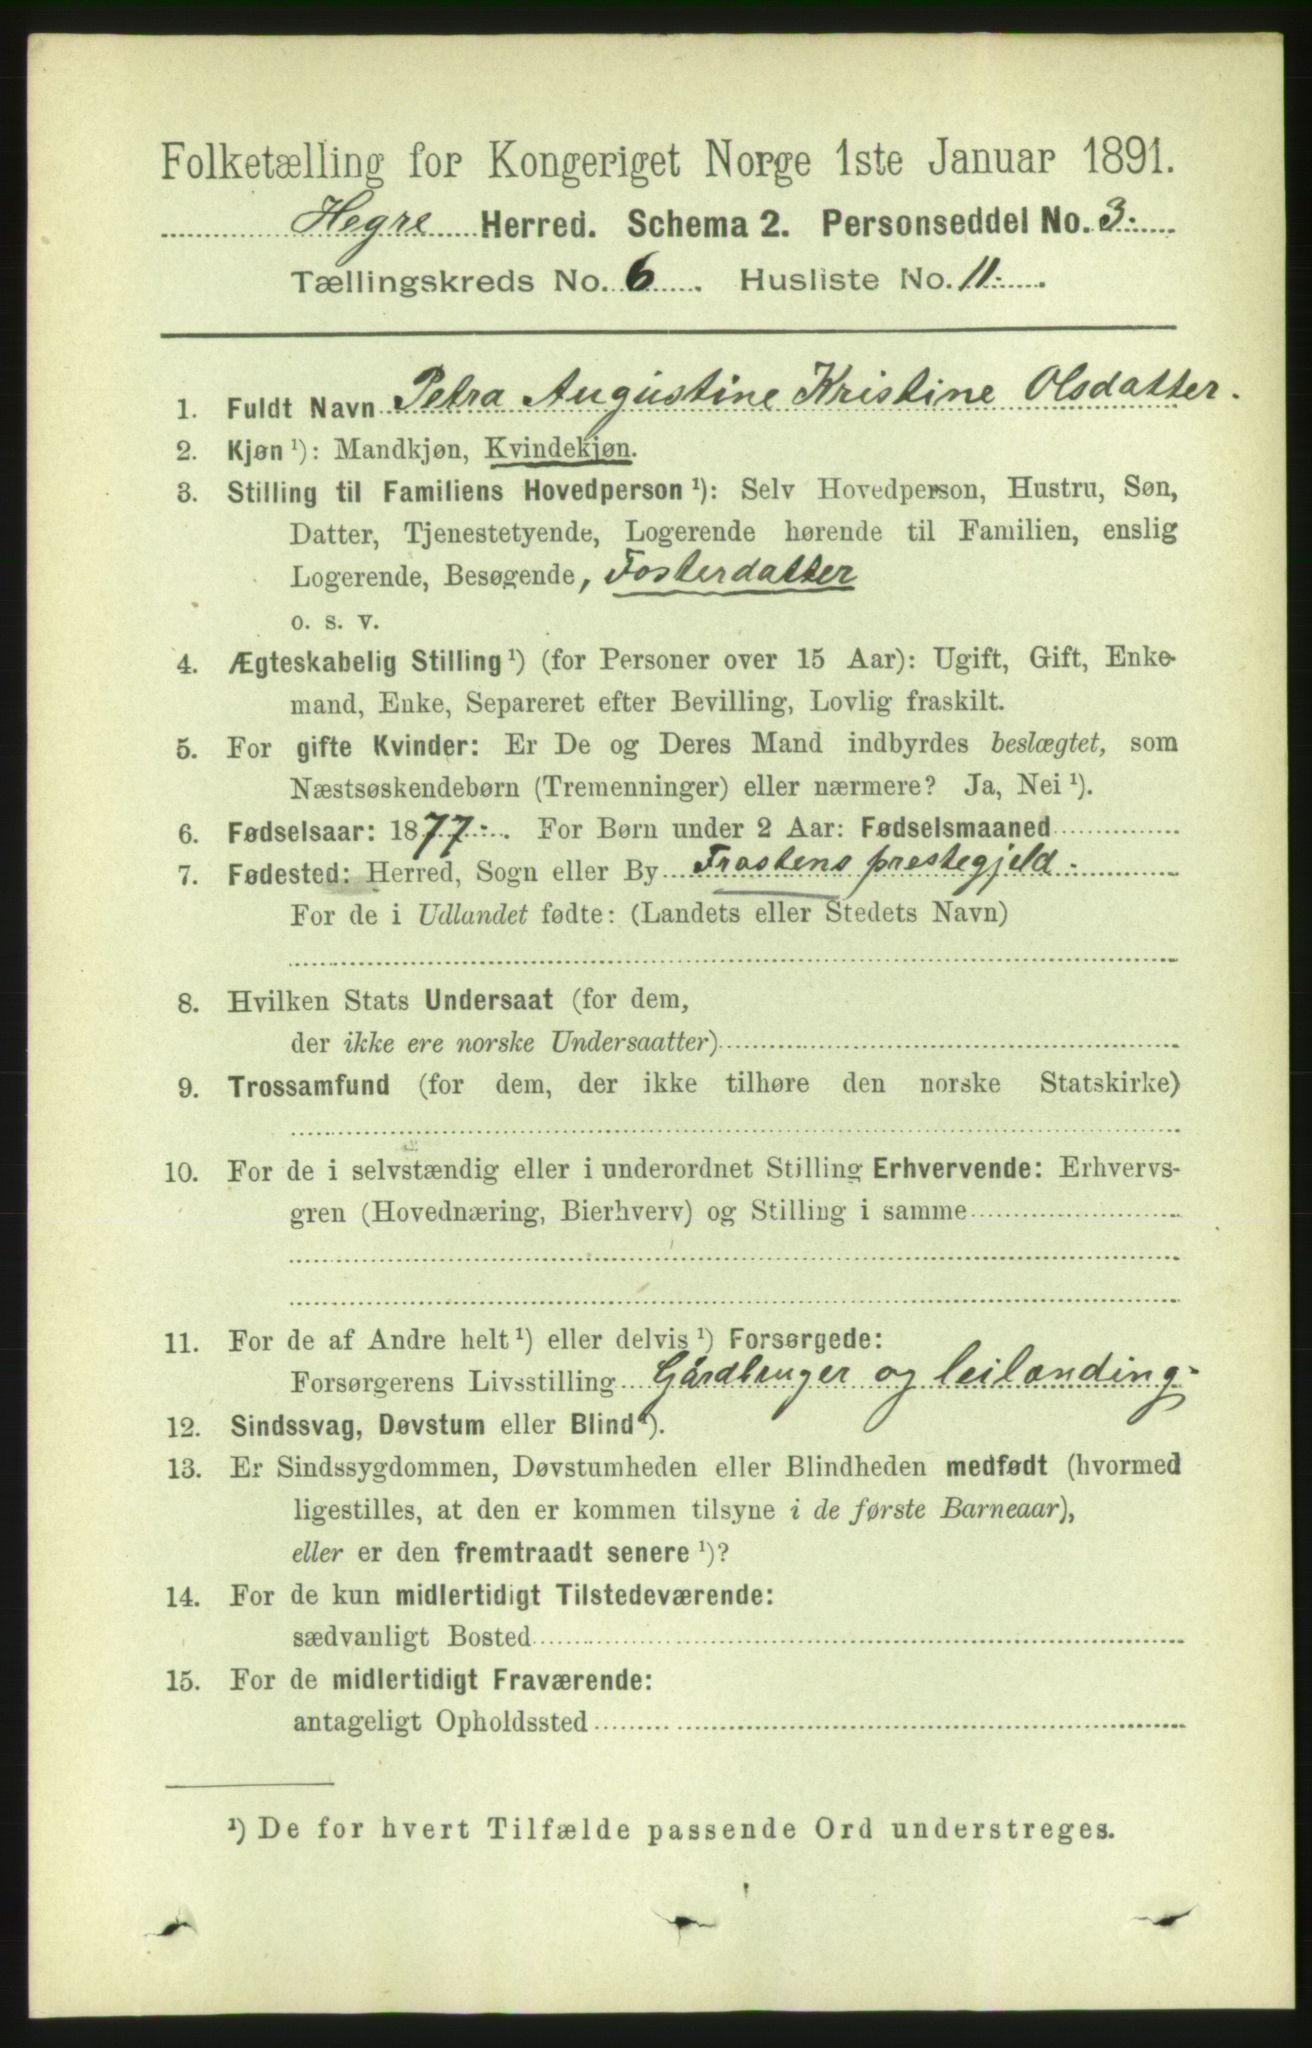 Folketælling for Kongeriget Norge 1ste Januar 1891.
Hegre Herred. Schema 2. Personseddel No. 3.
Tællingskreds No. 6. Husliste No. 11.
1. Fuldt Navn Petra Augustine Kristine Olsdatter.
2. Kjøn ¹): Mandkjøn, Kvindekjøn.
3. Stilling til Familiens Hovedperson ¹): Selv Hovedperson, Hustru, Søn,
Datter, Tjenestetyende, Logerende hørende til Familien, enslig
Logerende, Besøgende, Fosterdatter
o. s. v.
4. Ægteskabelig Stilling ¹) (for Personer over 15 Aar): Ugift, Gift, Enke-
mand, Enke, Separeret efter Bevilling, Lovlig fraskilt.
5. For gifte Kvinder: Er De og Deres Mand indbyrdes beslægtet, som
Næstsøskendebørn (Tremenninger) eller nærmere? Ja, Nei ¹).
6. Fødselsaar: 1877. For Børn under 2 Aar: Fødselsmaaned
7. Fødested: Herred, Sogn eller By Frostens prestegjeld.
For de i Udlandet fødte: (Landets eller Stedets Navn)
8. Hvilken Stats Undersaat (for dem,
der ikke ere norske Undersaatter)
9. Trossamfund (for dem, der ikke tilhøre den norske Statskirke)
10. For de i selvstændig eller i underordnet Stilling Erhvervende: Erhvervs-
gren (Hovednæring, Bierhverv) og Stilling i samme
11. For de af Andre helt ¹) eller delvis ¹) Forsørgede:
Forsørgerens Livsstilling Gårdbruger og leilænding
12. Sindssvag, Døvstum eller Blind ¹).
13. Er Sindssygdommen, Døvstumheden eller Blindheden medfødt (hvormed
ligestilles, at den er kommen tilsyne i de første Barneaar),
eller er den fremtraadt senere ¹)?
14. For de kun midlertidigt Tilstedeværende:
sædvanligt Bosted
15. For de midlertidigt Fraværende:
antageligt Opholdssted
¹) De for hvert Tilfælde passende Ord understreges.